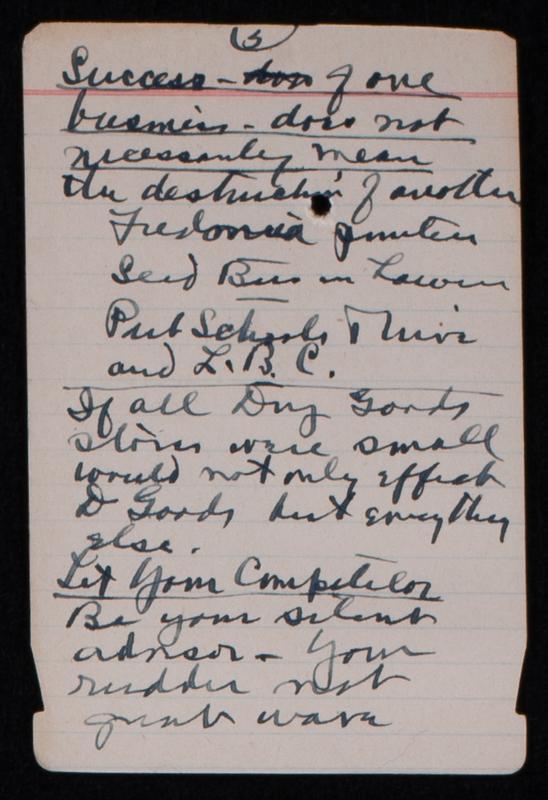 (3)
Success - of one
business - does not
necessarily mean
the destruction of another
Fredonia
Seed Bus in
Pub Schools
and L. B. C.
If all Dry Goods
stores were small
would not only effect
D Goods but everything
else.
Let Your Competitor
Be your silent
advisor - Your
rudder not